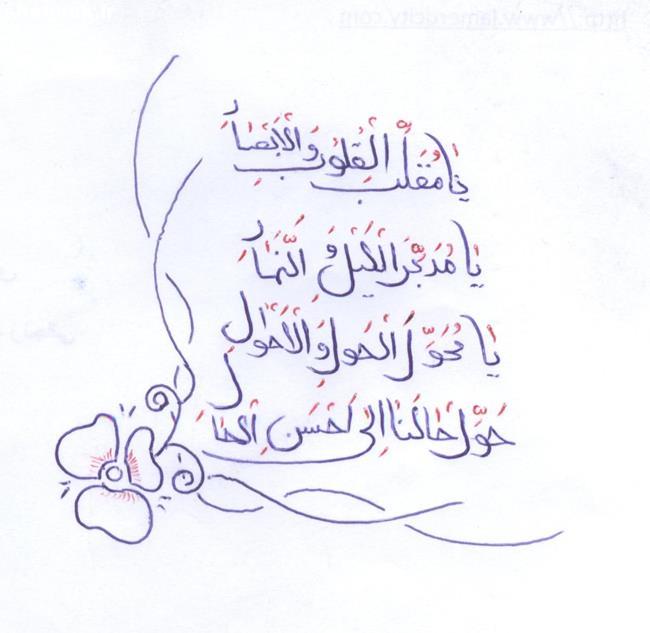 http://www.lamerdcity.com
یا مُقَلِّبَ الْقُلُوبِ وَالْاَبْصَارِ
یَا مُدَبِّرَ الَّیْلِ وَ النَّهَارِ
یَا مُحَوِّلَ الْحَوْلِ وَالْاَحْوَالِ
حَوِّلْ حَالَنَا اِلَی اَحْسَنِ الْحَالِ